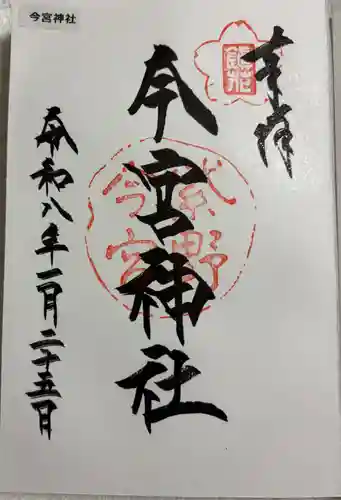 今宮神社
奉拝
鎮花
今宮神社
紫野
今宮
令和八年一月二十五日